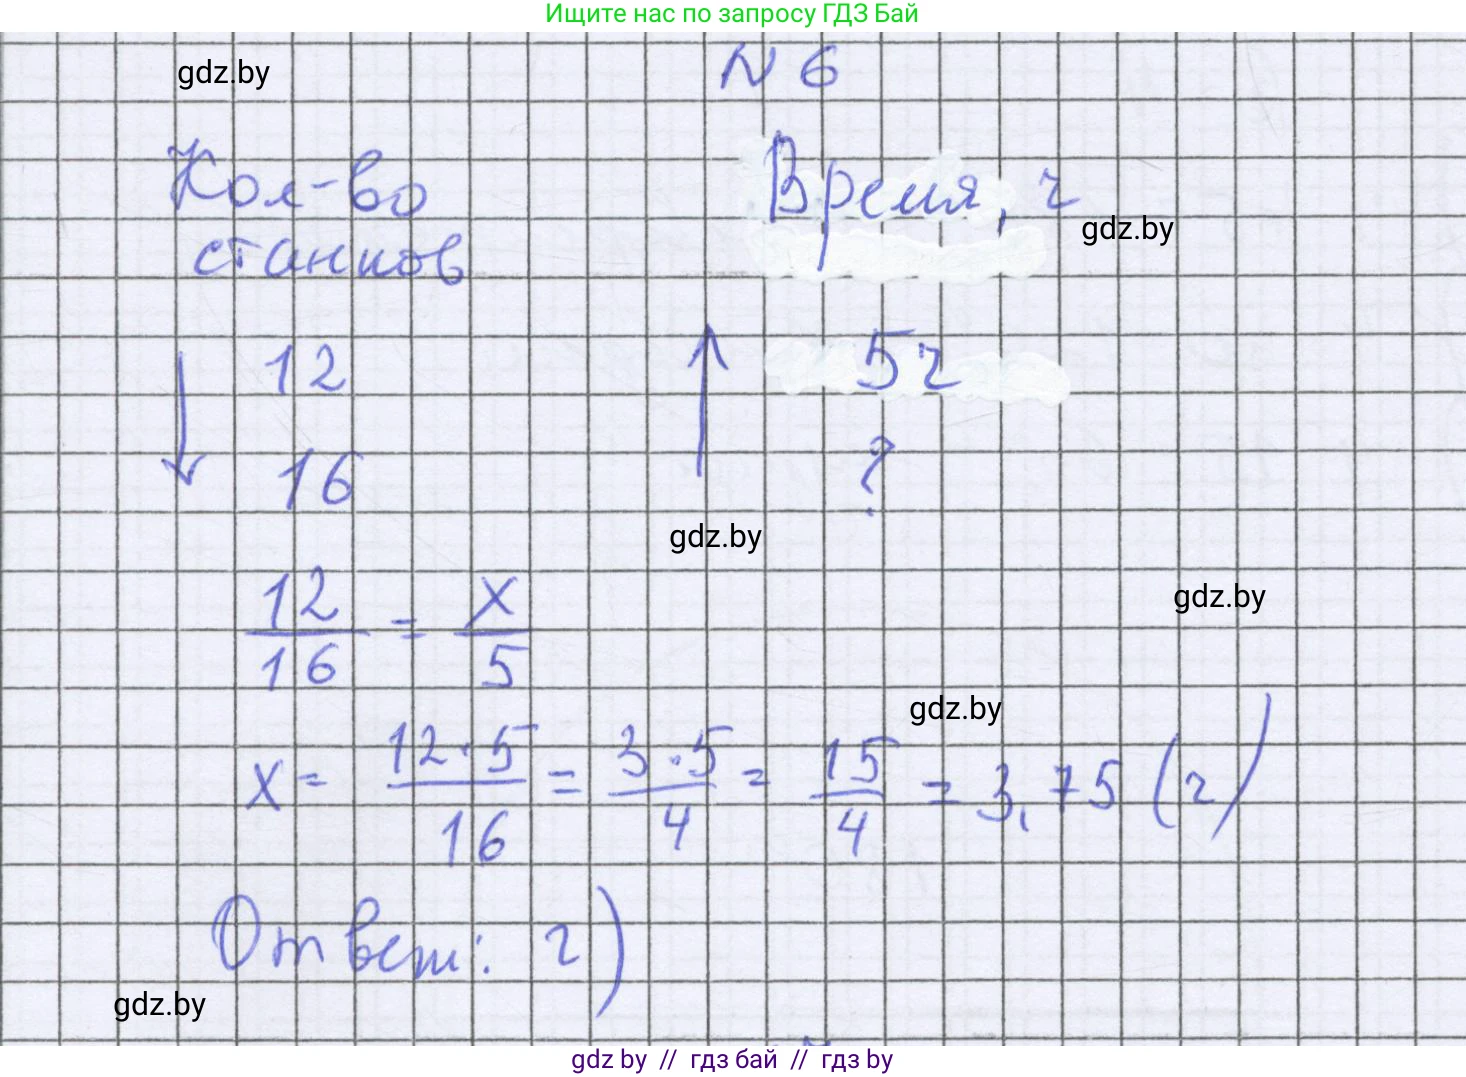 Ищите нас по запросу ГДЗ Бай
N 6
gdz.by
Кол-во Время, ч
станков
gdz.by
12 5ч
16 ?
gdz.by
12/16 = x/5
gdz.by
gdz.by
x = 12·5/16 = 3·5/4 = 15/4 = 3,75 (ч)
Ответ: г)
gdz.by
gdz by // гдз бай // гдз by